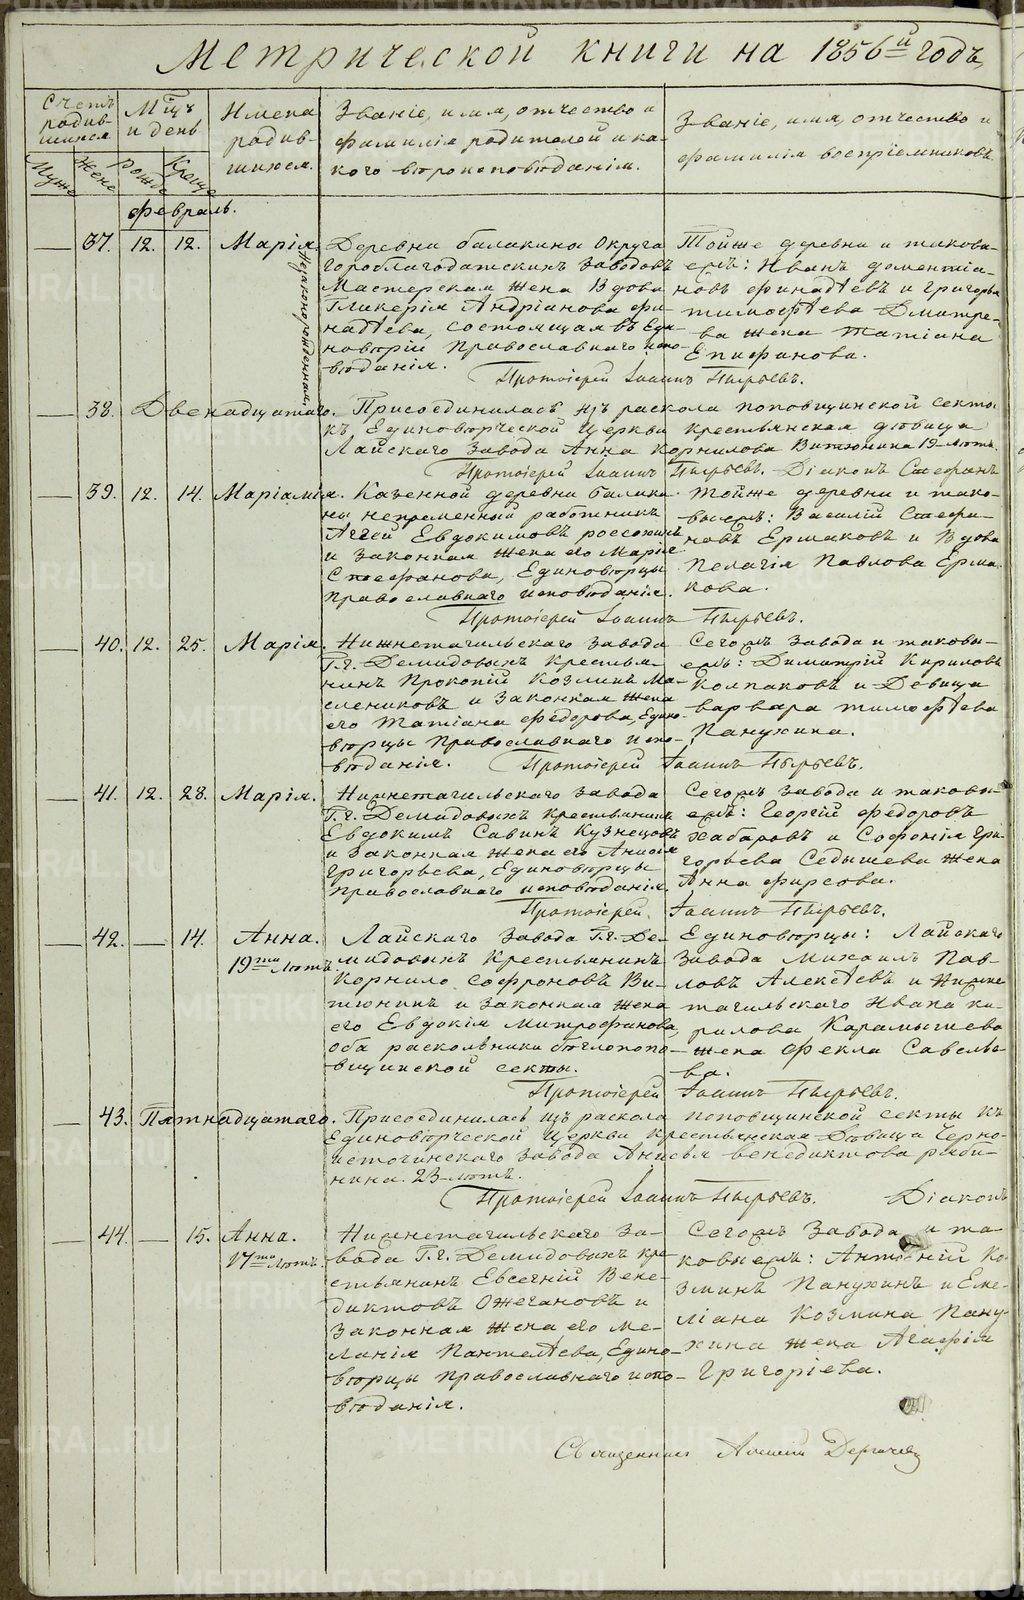 Метрической книги на 1856й годъ
Счетъ родив-шихся.
Муже Жене
Мцъ и день
Рожде Креще
Имена родив-шихся.
Званіе, имя, отчество и
фамилія родителей и ка-
кого вѣроисповѣданія.
Званіе, имя, отчество и
фамилія воспріемниковъ
Февраль.
37. 12. 12. Марія
Незаконорожденная.
Деревни Балакина Округа
гороблагодатскихъ заводовъ
Мастерская жена Вдова
Гликерія Андріанова Фи-
надѣева, состоящая въ Еди-
новѣріи Православнаго испо-
вѣданія.
Тойже деревни и такова-
ежъ: Иванъ Дементіа-
новъ Финадѣевъ и Григорья
Тимофѣева Дмитре-
ва жена Татіана
Епифанова.
Протоіерей Іоаннъ Пырьевъ.
38. Двенадцатаго. Присоединилась изъ раскола поповщинской секты
къ Единовѣрческой Церкви Крестьянская дѣвица
Лайскаго Завода Анна Корнилова Витюнина 19 лѣтъ.
Протоіерей Іоаннъ Пырьевъ. Діаконъ Стефанъ
39. 12. 14. Маріамія.
Казенной деревни Балаки-
ны непременный работникъ
Аггей Евдокимовъ россохинъ
и законная жена его Марія
Стефанова, Единовѣрцы
Православнаго исповѣданія.
Тойже деревни и тако-
выежъ: Василій Стефа-
новъ Ермаковъ и Вдова
Пелагія Павлова Ерма-
кова.
Протоіерей Іоаннъ Пырьевъ.
40. 12. 25. Марія.
Нижнетагильскаго завода
Г.г. Демидовыхъ Крестья-
нинъ Прокопій Козминъ Ма-
слениковъ и законная жена
его Татіана Федорова, Едино-
вѣрцы Православнаго испо-
вѣданія.
Сегожъ завода и таковы-
ежъ: Димитрій Кириловъ
Колпаковъ и Девица
Варвара Тимофѣева
Панухина.
Протоіерей Іоаннъ Пырьевъ.
41. 12. 28. Марія.
Нижнетагильскаго завода
Г.г. Демидовыхъ Крестьянинъ
Евдокимъ Савинъ Кузнецовъ
и законная жена его Анисія
Григорьева, Единовѣрцы
Православнаго исповѣданія.
Сегожъ завода и таковы-
ежъ: Георгій Федоровъ
Хабаровъ и Софонія Гри-
горьева Седышева жена
Анна Фирсова.
Протоіерей Іоаннъ Пырьевъ.
42. 14. Анна.
19ти лѣтъ
Лайскаго завода Г.г. Де-
мидовыхъ Крестьянинъ
Корнило Софроновъ Ви-
тюнинъ и законная жена
его Евдокія Митрофанова,
оба раскольники бѣглопопо-
вщинской секты.
Единовѣрцы: Лайскаго
завода Михаилъ Пав-
ловъ Алексѣевъ и Нижне
тагильскаго Ивана Ки-
рилова Карамышева
жена Фекла Савелье-
ва.
Протоіерей Іоаннъ Пырьевъ.
43. Пятнадцатаго. Присоединилась изъ раскола поповщинской секты къ
Единовѣрческой Церкви Крестьянская Дѣвица Черно-
источинскаго завода Анисья Венедиктова ряби-
нина. 23 лѣтъ.
Протоіерей Іоаннъ Пырьевъ. Діаконъ
44. 15. Анна.
17ти лѣтъ.
Нижнетагильскаго за-
вода Г.г. Демидовыхъ кре-
стьянинъ Евсегній Вене-
диктовъ Ожегановъ и
законная жена его Ме-
ланія Пантелѣева, Едино-
вѣрцы Православнаго испо-
вѣданія.
Сегожъ завода и та-
ковыежъ: Антоній Ко-
зминъ Панухинъ и Еме-
ліана Козмина Пану-
хина жена Агафія
Григоріева.
Священникъ Алексій Дергачевъ